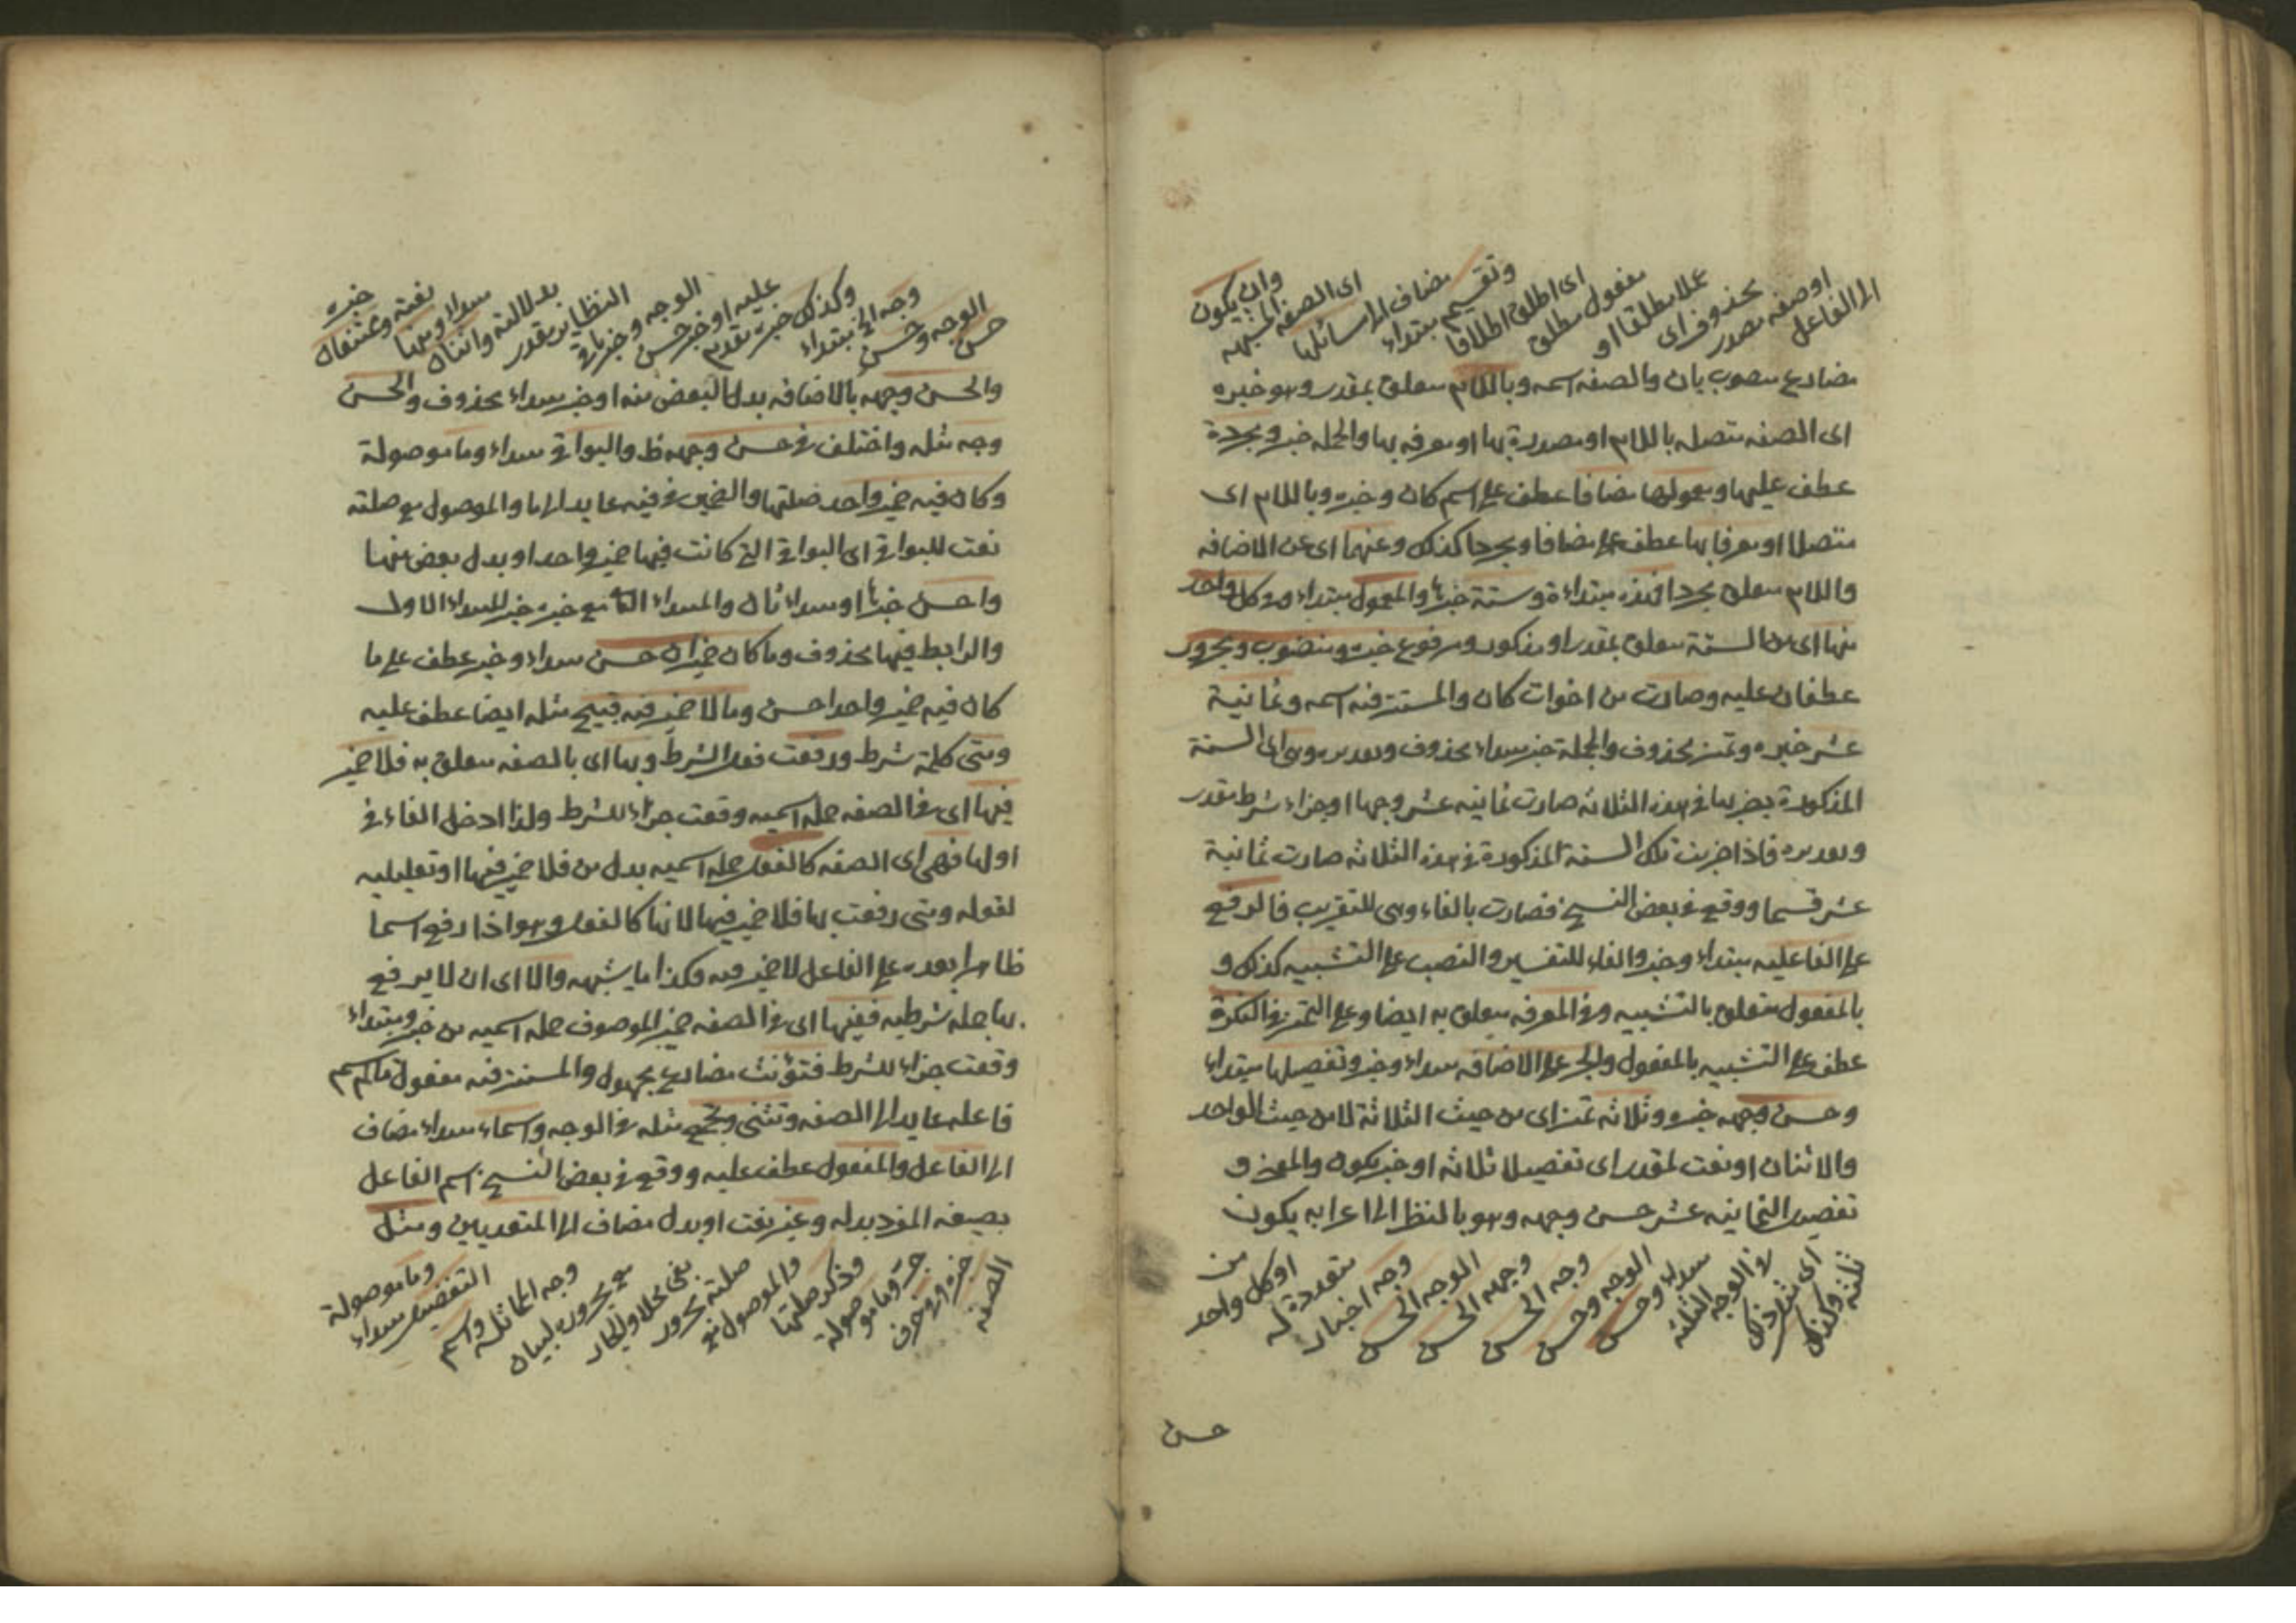 الى الفاعل
او صفه مصدر
محذوف اى
عملا مطلقا او
مفعول مطلق
اى اطلق اطلاقا
وتقسيم مبتداء
مضاف الى مسائلها
اى الصفه المشبهه
وان يكون
مضارع منصوب بان والصفه اسمه وباللام متعلق بمقدر وهو خبره
اى الصفه متصله باللام او مصدرة بها او معرفه بها والجمله خبر ومجردة
عطف عليها ومعمولها مضافا عطف على اسم كان وخبره وباللام اى
متصلا او معرفا بها عطف على مضافا ومجردا كذلك وعنهما اى عن الاضافه
واللام متعلق بمجردا فهذه مبتداءة وستة خبرها والمعمول مبتداء وفى كل واحد
منها اى من الستة متعلق بمقدر او مذكور ومرفوع خبره ومنصوب ومجرور
عطفان عليه وصارت من اخوات كان والمستتر فيه اسمه وثمانية
عشر خبره وتميز محذوف والجملة خبر مبتداء محذوف وتقديره وهى اى الستة
المذكورة بضربها فى هذه الثلاثه صارت ثمانيه عشر وجها او جزاء شرط مقدر
وتقديره فاذا ضربت تلك الستة المذكورة فى هذه الثلاثه صارت ثمانية
عشر قسما ووقع فى بعض النسخ فصارت بالفاء وهى للتقريب فالرفع
على الفاعليه مبتداء وخبر والفاء للتفسير والنصب على التشبيه كذلك و
بالمفعول متعلق بالتشبيه وفى المعرفه متعلق به ايضا وعلى التميز فى النكرة
عطف على التشبيه بالمفعول والجر على الاضافه مبتداء وخبر وتفصيلها مبتداء
وحسن وجهه خبره وثلاثه تميز اى من حيث الثلاثة لا من حيث الواحد
والاثنان او نعت لمقدر اى تفصيلا ثلاثه او خبر يكون والمعنى و
تفصيل الثمانيه عشر حسن وجهه وهو بالنظر الى اعرابه يكون
ثلثة وكذلك
اى مثل ذلك
فى الوجه الثلثه
مبتداء وحسن
الوجه وحسن
وجه الحسن
وجهه الحسن
الوجه الحسن
وجه اخبار
متعددة له
او كل واحد
من
حسن
حسن
الوجه وحسن
وجه الخ مبتداء
وكذلك خبره تقدم
عليه او خبر حسن
الوجه وخبر باقى
النظاير بقدر
بدلالته واثنان
مبتداء ومنها
نعته وممتنعان
خبره
والحسن وجهه بالاضافه بدل البعض منه او خبر مبتداء محذوف والحسن
وجه مثله واختلف فى حسن وجهه ظ والبواقى مبتداء وما موصولة
وكان فيه ضمير واحد صلتها والضمير فى فيه عايد الى ما والموصول مع صلته
نعت للبواقى اى البواقى التى كانت فيها ضمير واحد او بدل بعض منها
واحسن خبرها او مبتداء ثان والمبتداء الثانى مع خبره خبر للمبتداء الاول
والرابط فيها محذوف وما كان ضميران حسن مبتداء وخبر عطف على ما
كان فيه ضمير واحد احسن وما لا ضمير فيه قبيح مثله ايضا عطف عليه
ومتى كلمة شرط ورفعت فعل الشرط وبها اى بالصفه متعلق به فلا ضمير
فيها اى فى الصفه جمله اسميه وقعت جزاء للشرط ولذا ادخل الفاء فى
اولها فهى اى الصفه كالفعل جمله اسميه بدل من فلا ضمير فيها او تعليليه
لقوله ومتى رفعت بها فلا ضمير فيها لانها كالفعل وهو اذا رفع اسما
ظاهرا بعده على الفاعل لا ضمير فيه فكذا ما يشبهه والا اى ان لا يرفع
بها جمله شرطيه ففيها اى فى الصفه ضمير الموصوف جمله اسميه من خبر ومبتداء
وقعت جزاء للشرط فتؤنث مضارع مجهول والمستتر فيه مفعول مالم يسم
فاعله عايد الى الصفه وتثنى وتجمع مثله فى الوجه واسماء مبتداء مضاف
الى الفاعل والمفعول عطف عليه ووقع فى بعض النسخ اسم الفاعل
بصيغه المفرد بدله وغير نعت او بدل مضاف الى المتعديين ومثل
الصفه
خبره وفى حرف
جر وما موصولة
وذكر صلتها
والموصول مع
صلته مجرور
بفى محلا والجار
مع مجروره لبيان
وجه المماثلة واسم
التفضيل مبتداء
وما موصولة